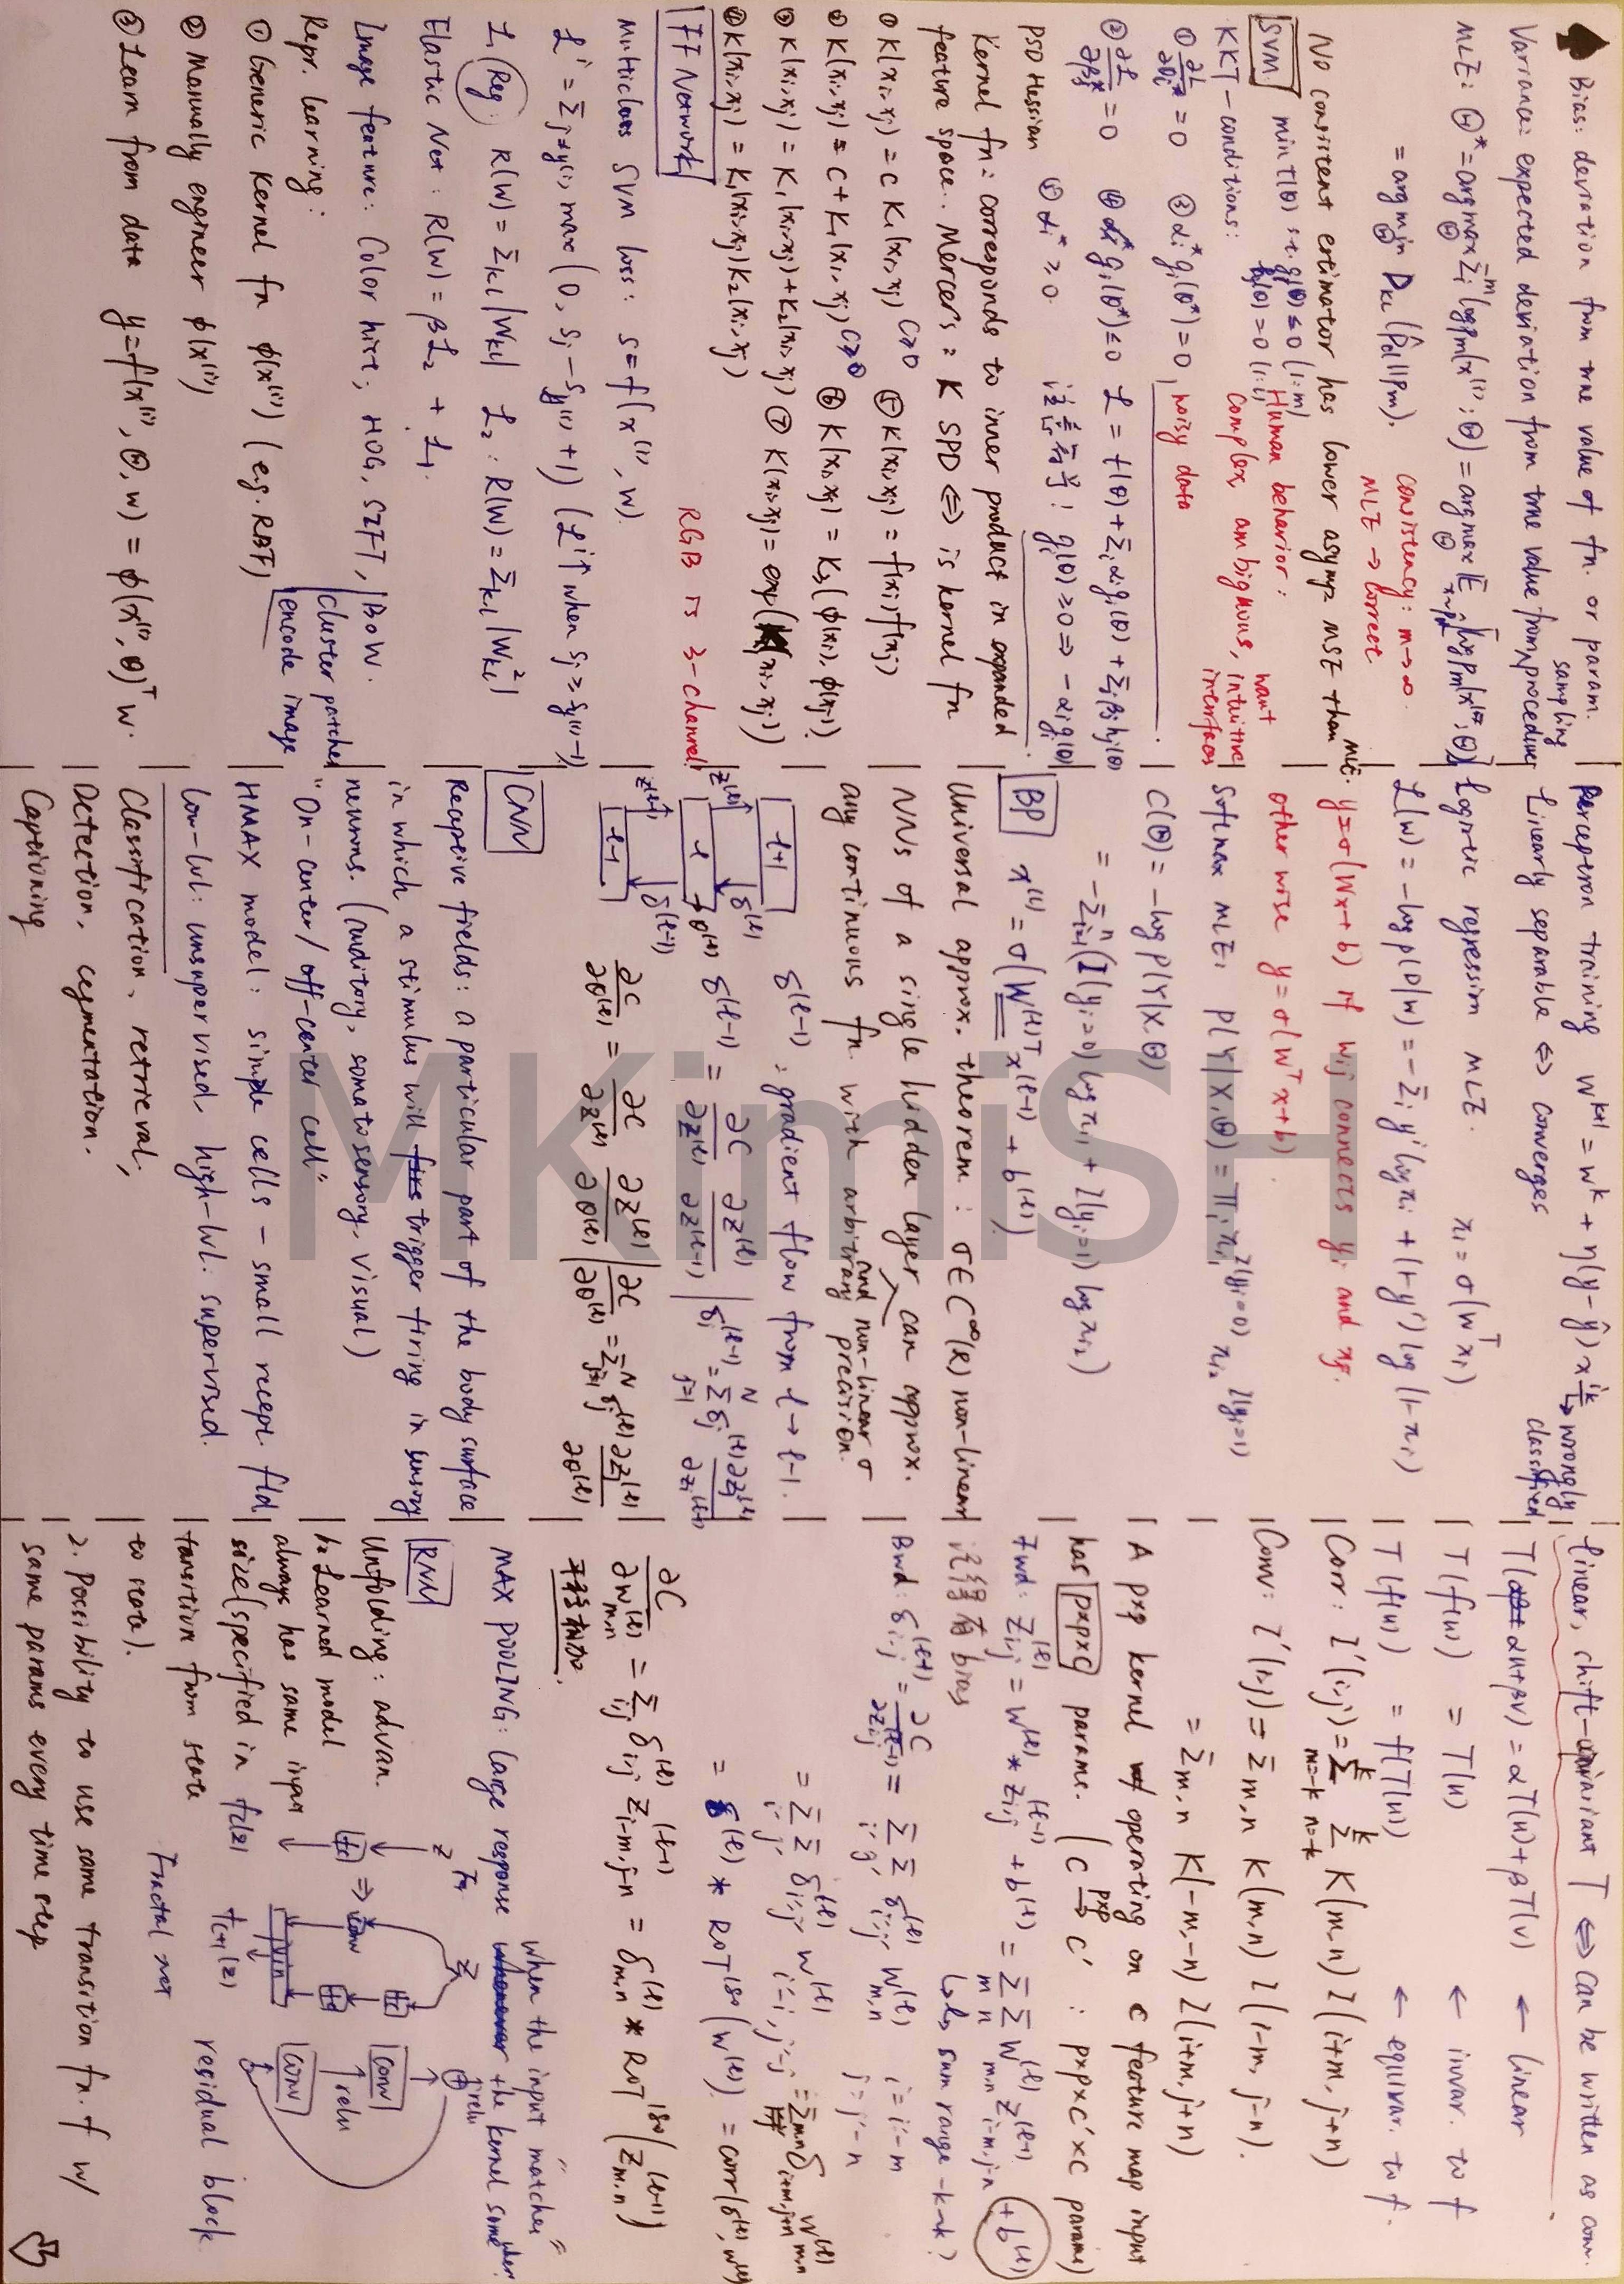 ♠ Bias: deviation from true value of fn. or param.
Variance: expected deviation from true value from sampling procedure
MLE: Θ* = argmax_Θ Σ_i^m log pm(x^(i); Θ) = argmax_Θ E_x~pd [log pm(x^(i); Θ)]
= argmin_Θ D_KL(p̂d||pm).
Consistency: m→∞
MLE → correct
No consistent estimator has lower asymp MSE than MLE.
SVM min f(θ) s.t. gi(θ) ≤ 0 (i:m)
hj(θ) = 0 (j:l)
KKT-conditions:
Human behavior:
Complex, ambiguous, want intuitive interfaces
noisy data
① ∂L/∂θi* = 0 ③ αi* gi(θ*) = 0
② ∂L/∂βj* = 0 ④ gi(θ*) ≤ 0 L = f(θ) + Σi αi gi(θ) + Σj βj hj(θ)
PSD Hessian ⑤ αi* ≥ 0.
! gi(θ) ≥ 0 ⇒ -αi gi(θ)
Kernel fn: corresponds to inner product in expanded
feature space. Mercer's: K SPD ⇔ is kernel fn
① K(xi, xj) = c K1(xi, xj) c>0 ⑤ K(xi, xj) = f(xi) f(xj)
② K(xi, xj) = c + K1(xi, xj) c>0 ⑥ K(xi, xj) = K3(φ(xi), φ(xj)).
③ K(xi, xj) = K1(xi, xj) + K2(xi, xj) ⑦ K(xi, xj) = exp(K1(xi, xj))
④ K(xi, xj) = K1(xi, xj) K2(xi, xj)
FF Network
RGB is 3-channel!
Multiclass SVM loss: s = f(x^(i), W).
L^i = Σ_j≠y(i) max(0, sj - s_y(i) + 1) (L^i ↑ when sj > s_y(i) - 1)
L1 Reg: R(W) = Σ_k,l |W_kl| L2: R(W) = Σ_k,l |W_kl^2|
Elastic Net: R(W) = βL2 + L1.
Image feature: Color hist, HOG, SIFT, BoW.
cluster patches
encode image
Repr. learning:
① Generic Kernel fn φ(x^(i)) (e.g. RBF)
② Manually engineer φ(x^(i))
③ Learn from data y = f(x^(i), Θ, w) = φ(x^(i), θ)^T w.
Perceptron training w^k+1 = w^k + η(y - ŷ) x^ik → wrongly classified
Linearly separable ⇔ converges
Logistic regression MLE. πi = σ(w^T xi)
L(w) = -log p(D|w) = -Σi y^i log πi + (1-y^i) log (1-πi)
y = σ(Wx+b) if wij connects yi and xj.
otherwise y = σ(W^T x + b)
Softmax MLE: p(Y|X,Θ) = Πi πi1^I(yi=0) πi2^I(yi=1)
C(Θ) = -log p(Y|X,Θ)
= -Σ_i=1^n (I(yi=0) log πi1 + I(yi=1) log πi2)
BP x^(l) = σ(W^(l)T x^(l-1) + b^(l))
Universal approx. theorem: σ∈C^∞(R) non-linear
NNs of a single hidden layer and non-linear σ can approx.
any continuous fn with arbitrary precision.
l+1
l
l-1
z^(l)
z^(l-1)
δ^(l)
δ^(l-1)
θ^(l)
δ^(l-1): gradient flow from l → l-1.
δ^(l-1) = ∂C/∂z^(l) ∂z^(l)/∂z^(l-1) | δi^(l-1) = Σ_j=1^N δj^(l) ∂zj^(l)/∂zi^(l-1)
∂C/∂θ^(l) = ∂C/∂z^(l) ∂z^(l)/∂θ^(l) | ∂C/∂θ^(l) = Σ_j=1^N δj^(l) ∂zj^(l)/∂θ^(l)
CNN
Receptive fields: a particular part of the body surface
in which a stimulus will trigger firing in sensory
neurons. (auditory, somatosensory, visual)
"On-center / off-center cell"
HMAX model: simple cells - small recept. fld
Low-lvl: unsupervised, high-lvl: supervised.
Classification, retrieval,
Detection, segmentation.
Captioning
Linear, shift-invariant T ⇔ can be written as conv.
T(αu+βv) = αT(u) + βT(v) ← linear
T(f(u)) = T(u) ← invar. to f
T(f(u)) = f(T(u)) ← equivar. to f.
Corr: I'(i,j) = Σ_m=-k^k Σ_n=-k^k K(m,n) I(i+m, j+n)
Conv: I'(i,j) = Σ m,n K(m,n) I(i-m, j-n).
= Σ m,n K(-m,-n) I(i+m, j+n)
A pxp kernel operating on C feature map input
has pxpxC params. (C →pxp C' : pxpxC'xC params)
Fwd: Z_ij^(l) = W^(l) * Z_ij^(l-1) + b^(l) = Σ_m Σ_n W_m,n^(l) Z_i-m,j-n^(l-1) + b^(l)
记得有 bias
↳ sum range -k→k)
Bwd: δ_i,j^(l-1) = ∂C/∂z_ij^(l-1) = Σ_i' Σ_j' δ_i',j'^(l) W_m,n^(l) i = i'-m j = j'-n
= Σ_i' Σ_j' δ_i',j'^(l) W_i'-i,j'-j^(l) = Σ_mn δ_i+m,j+n W_m,n^(l)
= δ^(l) * ROT180(W^(l)) = corr(δ^(l), W^(l))
∂C/∂W_m,n^(l) = Σ_ij δ_i,j^(l) Z_i-m,j-n^(l-1) = δ_m,n^(l) * ROT180(Z_m,n^(l-1))
MAX POOLING: large response when the input "matches" the kernel somewhere
RNN
Unfolding: advan.
1. Learned model
always has same input
size (specified in
transition from state
to state).
2. Possibility to use same transition fn. f w/
same params every time step
z
conv
join
fc(z)
f_c+1(z)
Fractal net
relu
conv
relu
conv
residual block
MKimiSH